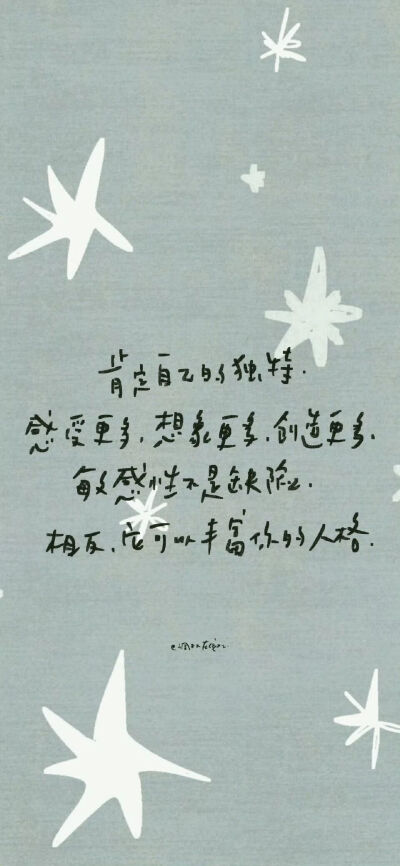 肯定自己的独特.
感受更多.想象更多.创造更多.
敏感性不是缺陷.
相反.它可以丰富你的人格.